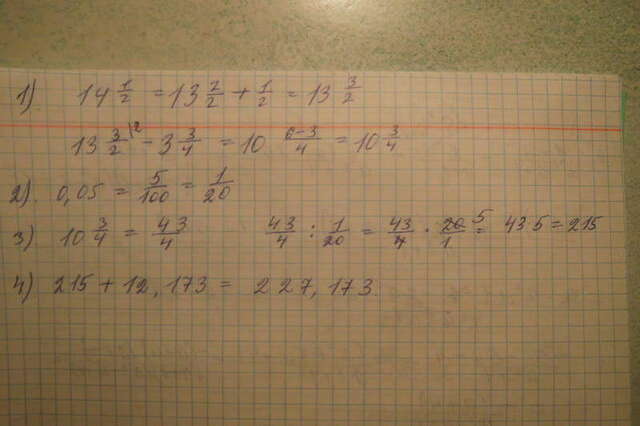 1) 14 1/2 = 13 2/2 + 1/2 = 13 3/2
13 3/2 |2 - 3 3/4 = 10 6-3/4 = 10 3/4
2). 0,05 = 5/100 = 1/20
3) 10 3/4 = 43/4 43/4 : 1/20 = 43/4 · 20/1 5 = 43 5 = 215
4) 215 + 12,173 = 227,173